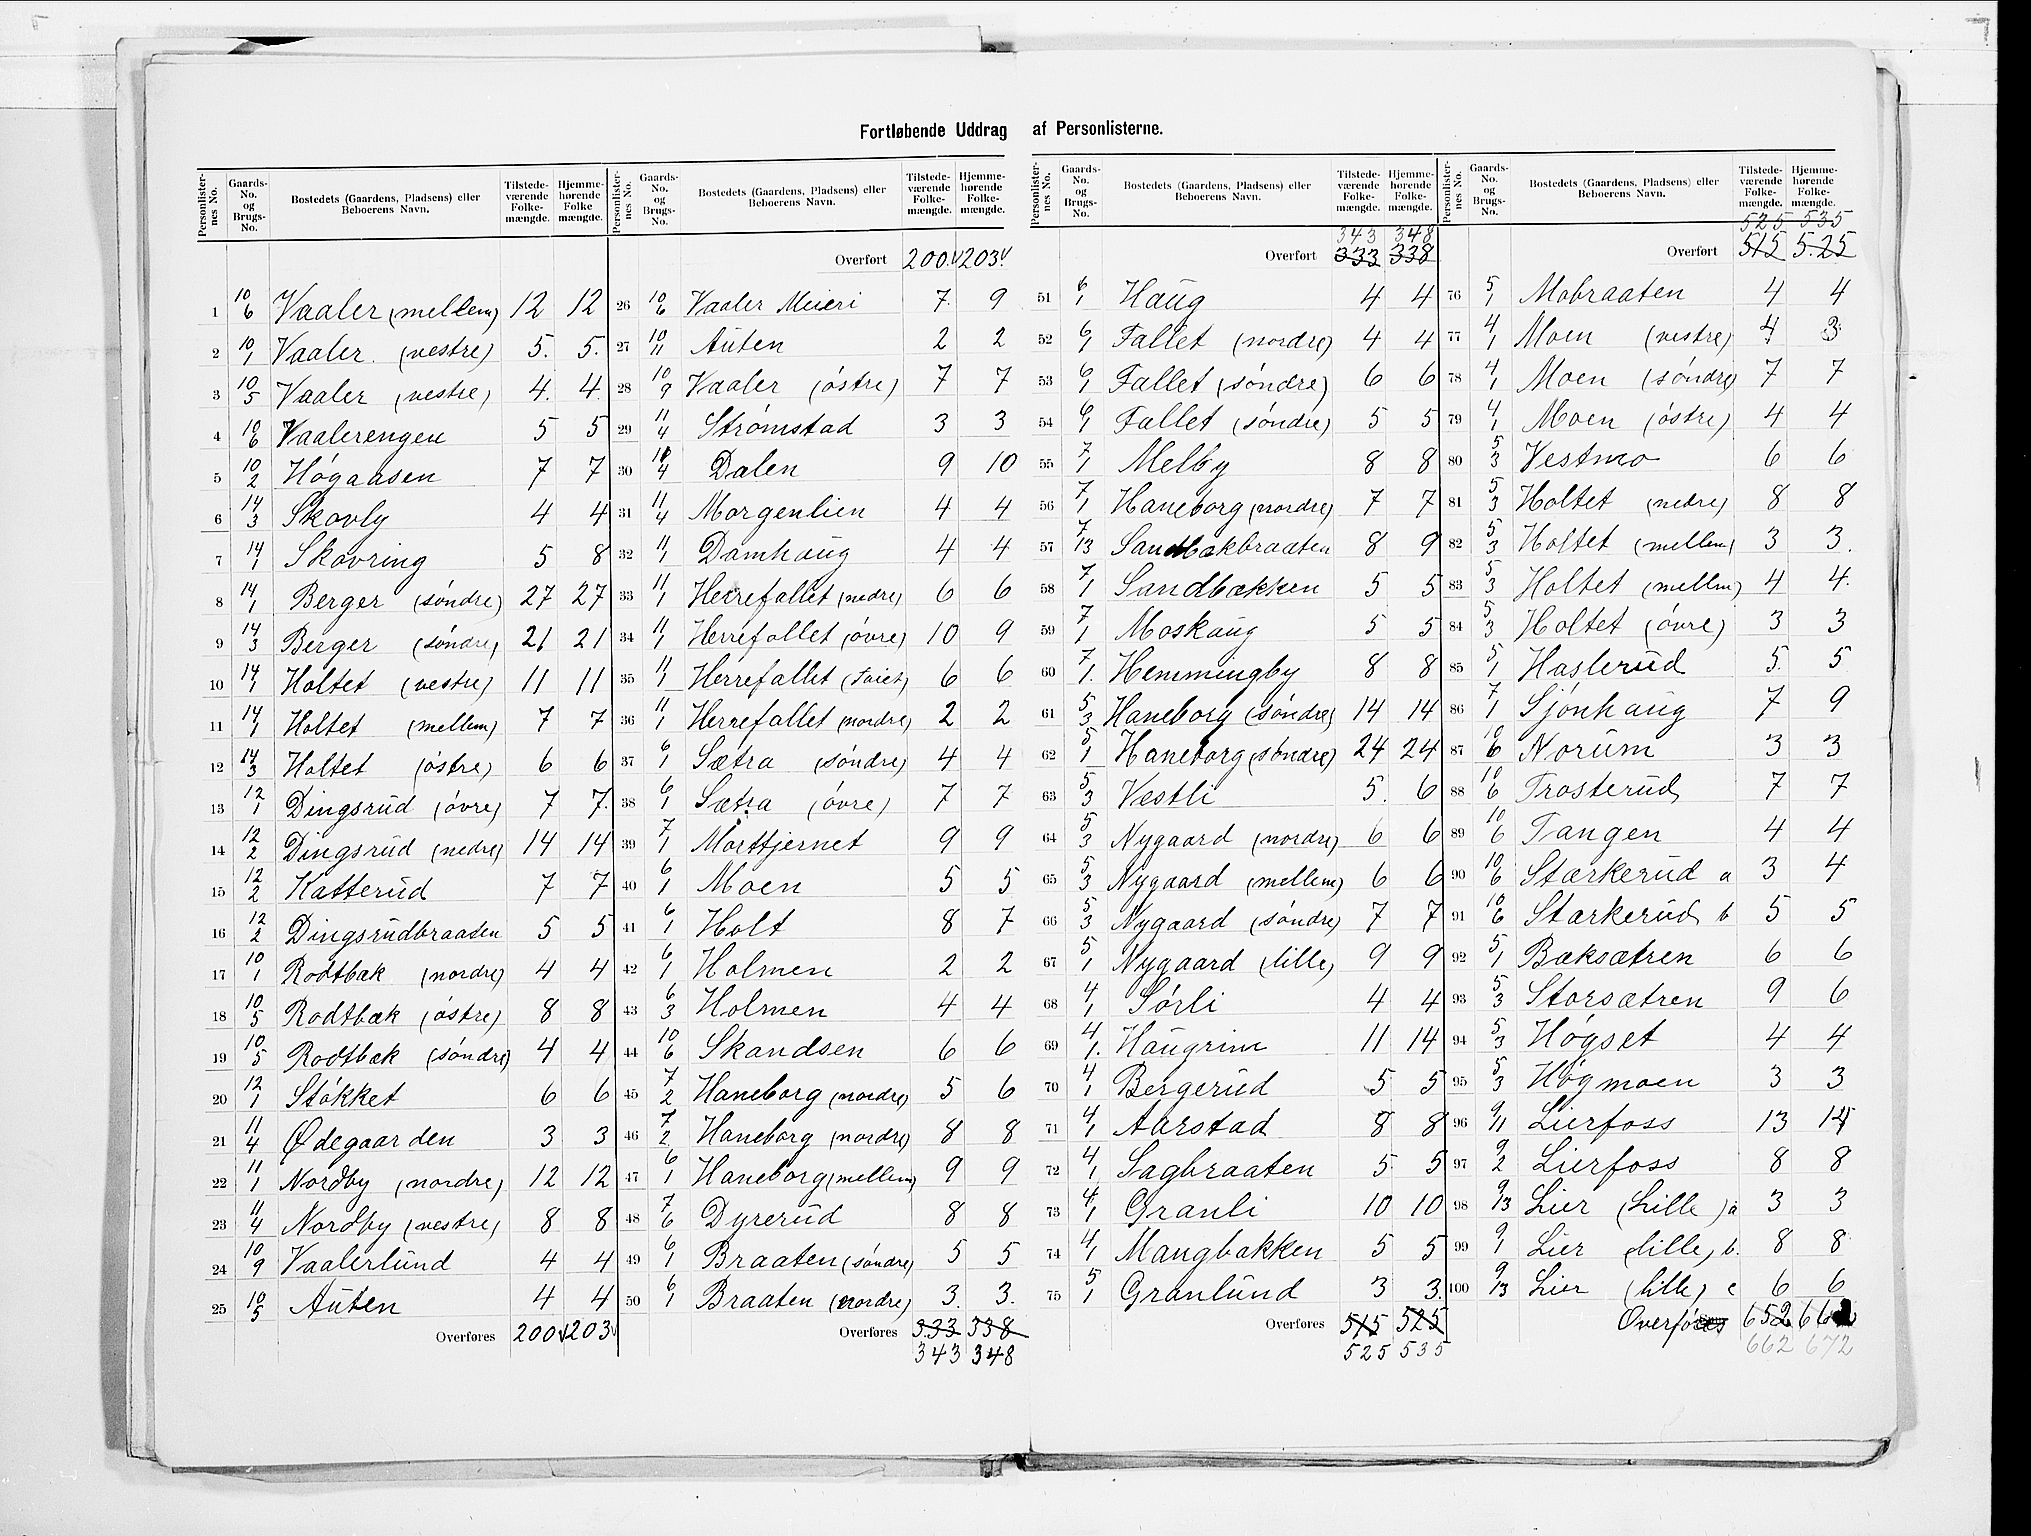 Fortløbende Uddrag af Personlisterne.
Personlisternes No. | Gaards-No. og Brugs-No. | Bostedets (Gaardens, Pladsens) eller Beboerens Navn. | Tilstedeværende Folkemængde. | Hjemmehørende Folkemængde.
1 10/6 Vaaler (mellem) 12 12
2 10/1 Vaaler (vestre) 5. 5.
3 10/5 Vaaler (vestre) 4. 4
4 10/6 Vaalerengen 5 5
5 10/2 Høgaasen 7 7
6 14/3 Skovly 4 4
7 14/1 Skovring 5 8
8 14/1 Berger (söndre) 27 27
9 14/3 Berger (söndre) 21 21
10 14/1 Holtet (vestre) 11 11
11 14/1 Holtet (mellem) 7 7
12 14/3 Holtet (östre) 6 6
13 12/1 Dingsrud (övre) 7 7.
14 12/2 Dingsrud (nedre) 14 14
15 12/2 Katterud 7 7
16 12/2 Dingsrudbraaten 5 5
17 10/1 Rodtbæk (nordre) 4 4
18 10/5 Rodtbæk (östre) 8 8
19 10/5 Rodtbæk (söndre) 4 4
20 12/1 Stökket 6 6
21 11/4 Ødegaarden 3 3
22 11/1 Nordby (nordre) 12 12
23 11/4 Nordby (vestre) 8 8
24 10/9 Vaalerlund 4 4
25 10/5 Auten 4 4
Overføres 200 203
Personlisternes No. | Gaards-No. og Brugs-No. | Bostedets (Gaardens, Pladsens) eller Beboerens Navn. | Tilstedeværende Folkemængde. | Hjemmehørende Folkemængde.
Overført 200 203
26 10/6 Vaaler Meieri 7. 9
27 10/11 Auten 2 2
28 10/9 Vaaler (östre) 7 7
29 11/4 Strømstad 3 3
30 11/4 Dalen 9 10
31 11/4 Morgenlien 4 4
32 11/1 Damhaug 4 4
33 11/1 Herrefallet (nedre) 6 6
34 11/1 Herrefallet (övre) 10 9
35 11/1 Herrefallet (Tviet) 6 6
36 11/1 Herrefallet (nordre) 2 2
37 6/1 Sætra (söndre) 4 4
38 6/1 Sætra (övre) 7 7
39 7/1 Morttjernet 9 9
40 6/1 Moen 5 5
41 6/1 Holt 8 7
42 6/1 Holmen 2 2
43 6/3 Holmen 4 4
44 10/6 Skandsen 6 6
45 7/2 Haneborg (nordre) 5 6
46 7/2 Haneborg (nordre) 8 8
47 6/1 Haneborg (mellem) 9 9
48 7/6 Dyrerud 8 8
49 6/1 Braaten (söndre) 5 5
50 6/1 Braaten (nordre) 3. 3.
Overføres 333 338
343 348
Personlisternes No. | Gaards-No. og Brugs-No. | Bostedets (Gaardens, Pladsens) eller Beboerens Navn. | Tilstedeværende Folkemængde. | Hjemmehørende Folkemængde.
343 348
Overført 333 338
51 6/1 Haug 4 4
52 6/1 Fallet (nordre) 4 4
53 6/1 Fallet (söndre) 6 6
54 6/1 Fallet (söndre) 5 5
55 7/1 Melby 8 8
56 7/1 Haneborg (nordre) 7 7
57 7/13 Sandbækbraaten 8 9
58 7/1 Sandbækken 5 5
59 7/1 Moskaug 5 5
60 7/1. Hemmingby 8 8
61 5/3 Haneborg (söndre) 14 14
62 5/1 Haneborg (söndre) 24 24
63 5/3 Vestli 5. 6
64 5/3 Nygaard (nordre) 6 6
65 5/3 Nygaard (mellem) 6 6
66 5/3 Nygaard (söndre) 7 7
67 5/1 Nygaard (lille) 9 9
68 4/1 Sörli 4 4
69 4/1. Haugrim 11 14
70 4/1 Bergerud 5 5
71 4/1 Aarstad 8 8
72 4/1 Sagbraaten 5. 5
73 4/1 Granli 10 10
74 4/1 Mangbakken 5 5
75 5/1 Granlund 3 3.
Overføres 515 525
525 535
Personlisternes No. | Gaards-No. og Brugs-No. | Bostedets (Gaardens, Pladsens) eller Beboerens Navn. | Tilstedeværende Folkemængde. | Hjemmehørende Folkemængde.
525 535
Overført 515 525
76 5/1 Mobraaten 4 4
77 4/1 Moen (vestre) 4 3
78 4/1 Moen (söndre) 7 7
79 4/1 Moen (östre) 4 4
80 5/3 Vestmo 6 6
81 5/3 Holtet (nedre) 8 8
82 5/3 Holtet (mellem) 3 3.
83 5/3 Holtet (mellem) 4 4.
84 5/3 Holtet (övre) 3 3
85 5/1 Haslerud 5. 5
86 7/1 Sjönhaug 7 9
87 10/6 Norum 3 3
88 10/6 Trosterud 7 7
89 10/6 Tangen 4 4
90 10/6 Stærkerud a 3 4
91 10/6 Stærkerud b 5 5
92 5/1 Bæksætren 6 6
93 5/3 Storsætren 9 6
94 5/3 Høgset 4 4
95 5/3 Høgmoen 3 3
96 9/11 Lierfoss 13 14
97 9/2 Lierfoss 8 8
98 9/13 Lier (Lille) a 3 3
99 9/1 Lier (lille) b. 8 8
100 9/13 Lier (lille) c 6 6
Overføres 652 662
662 672